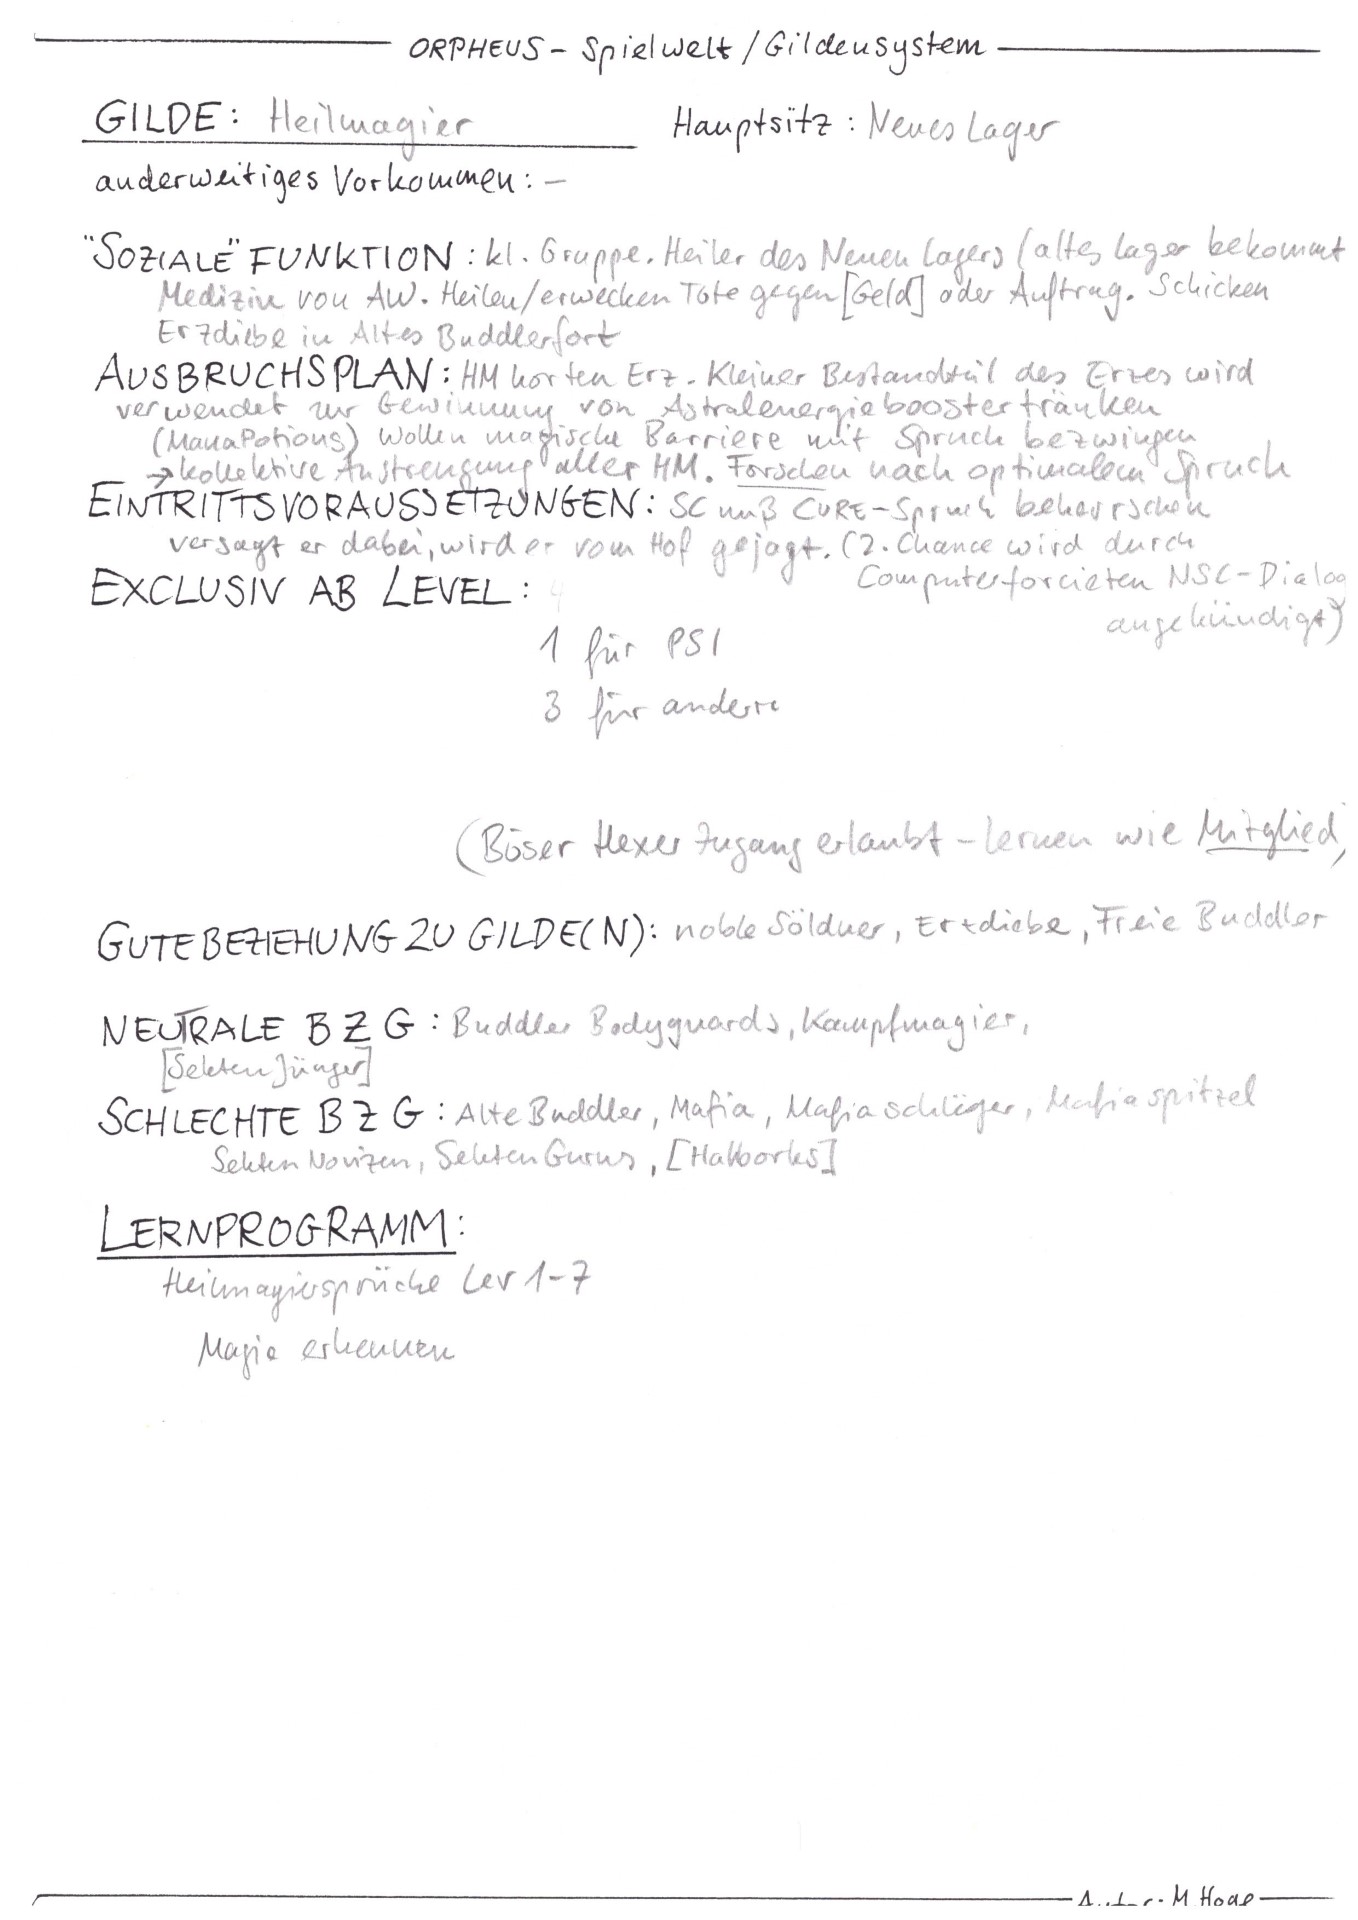 ORPHEUS - Spielwelt / Gildensystem
GILDE: Heilmagier Hauptsitz: Neues Lager
anderweitiges Vorkommen: -
"SOZIALE" FUNKTION: kl. Gruppe. Heiler des Neuen Lagers (altes Lager bekommt
Medizin von AW. Heilen/erwecken Tote gegen [Geld] oder Auftrag. Schicken
Erzdiebe in Altes Buddlerfort
AUSBRUCHSPLAN: HM horten Erz. Kleiner Bestandteil des Erzes wird
verwendet zur Gewinnung von Astralenergieboostertränken
(ManaPotions) Wollen magische Barriere mit Spruch bezwingen
→ kollektive Anstrengung aller HM. Forschen nach optimalem Spruch
EINTRITTSVORAUSSETZUNGEN: SC muß CURE-Spruch beherrschen
versagt er dabei, wird er vom Hof gejagt. (2. Chance wird durch
Computerforcieten NSC-Dialog
angekündigt)
EXCLUSIV AB LEVEL: 4
1 für PSI
3 für andere
(Böser Hexer Zugang erlaubt - lernen wie Mitglied)
GUTE BEZIEHUNG ZU GILDE(N): noble Söldner, Erzdiebe, Freie Buddler
NEUTRALE BZG: Buddler Bodyguards, Kampfmagier,
[Sekten Jünger]
SCHLECHTE BZG: Alte Buddler, Mafia, Mafiaschläger, Mafiaspitzel
Sekten Novizen, Sekten Gurus, [Halborks]
LERNPROGRAMM:
Heilmagiersprüche Lev 1-7
Magie erkennen
Autor: M. Hoge